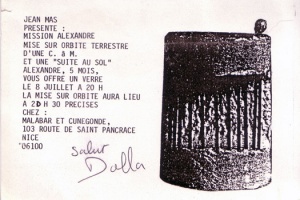 JEAN MAS
PRESENTE :
MISSION ALEXANDRE
MISE SUR ORBITE TERRESTRE
D'UNE C. à M.
ET UNE "SUITE AU SOL"
ALEXANDRE, 5 MOIS,
VOUS OFFRE UN VERRE
LE 8 JUILLET A 20 H
LA MISE SUR ORBITE AURA LIEU
A 20 H 30 PRECISES
CHEZ :
MALABAR ET CUNEGONDE,
103 ROUTE DE SAINT PANCRACE
NICE
06100
salut
Dolla